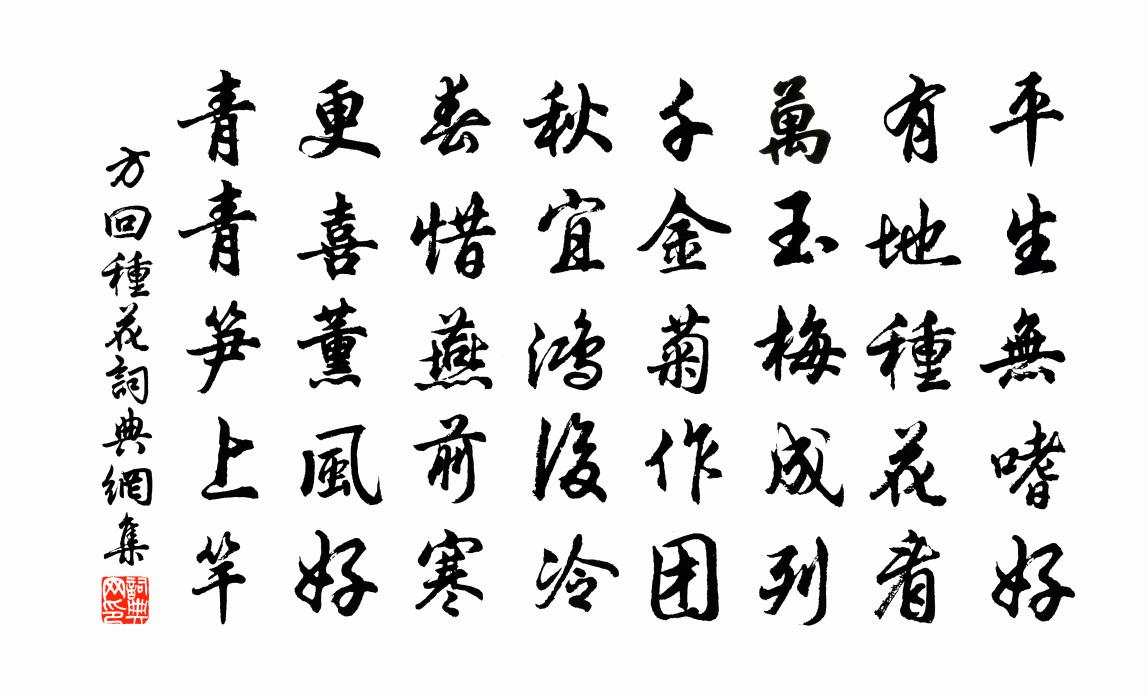 平生無嗜好
有地種花看
萬玉梅成列
千金菊作团
秋宜鴻後冷
春惜燕前寒
更喜薰風好
青青笋上竿
方回種花詞典網集
詞典网印